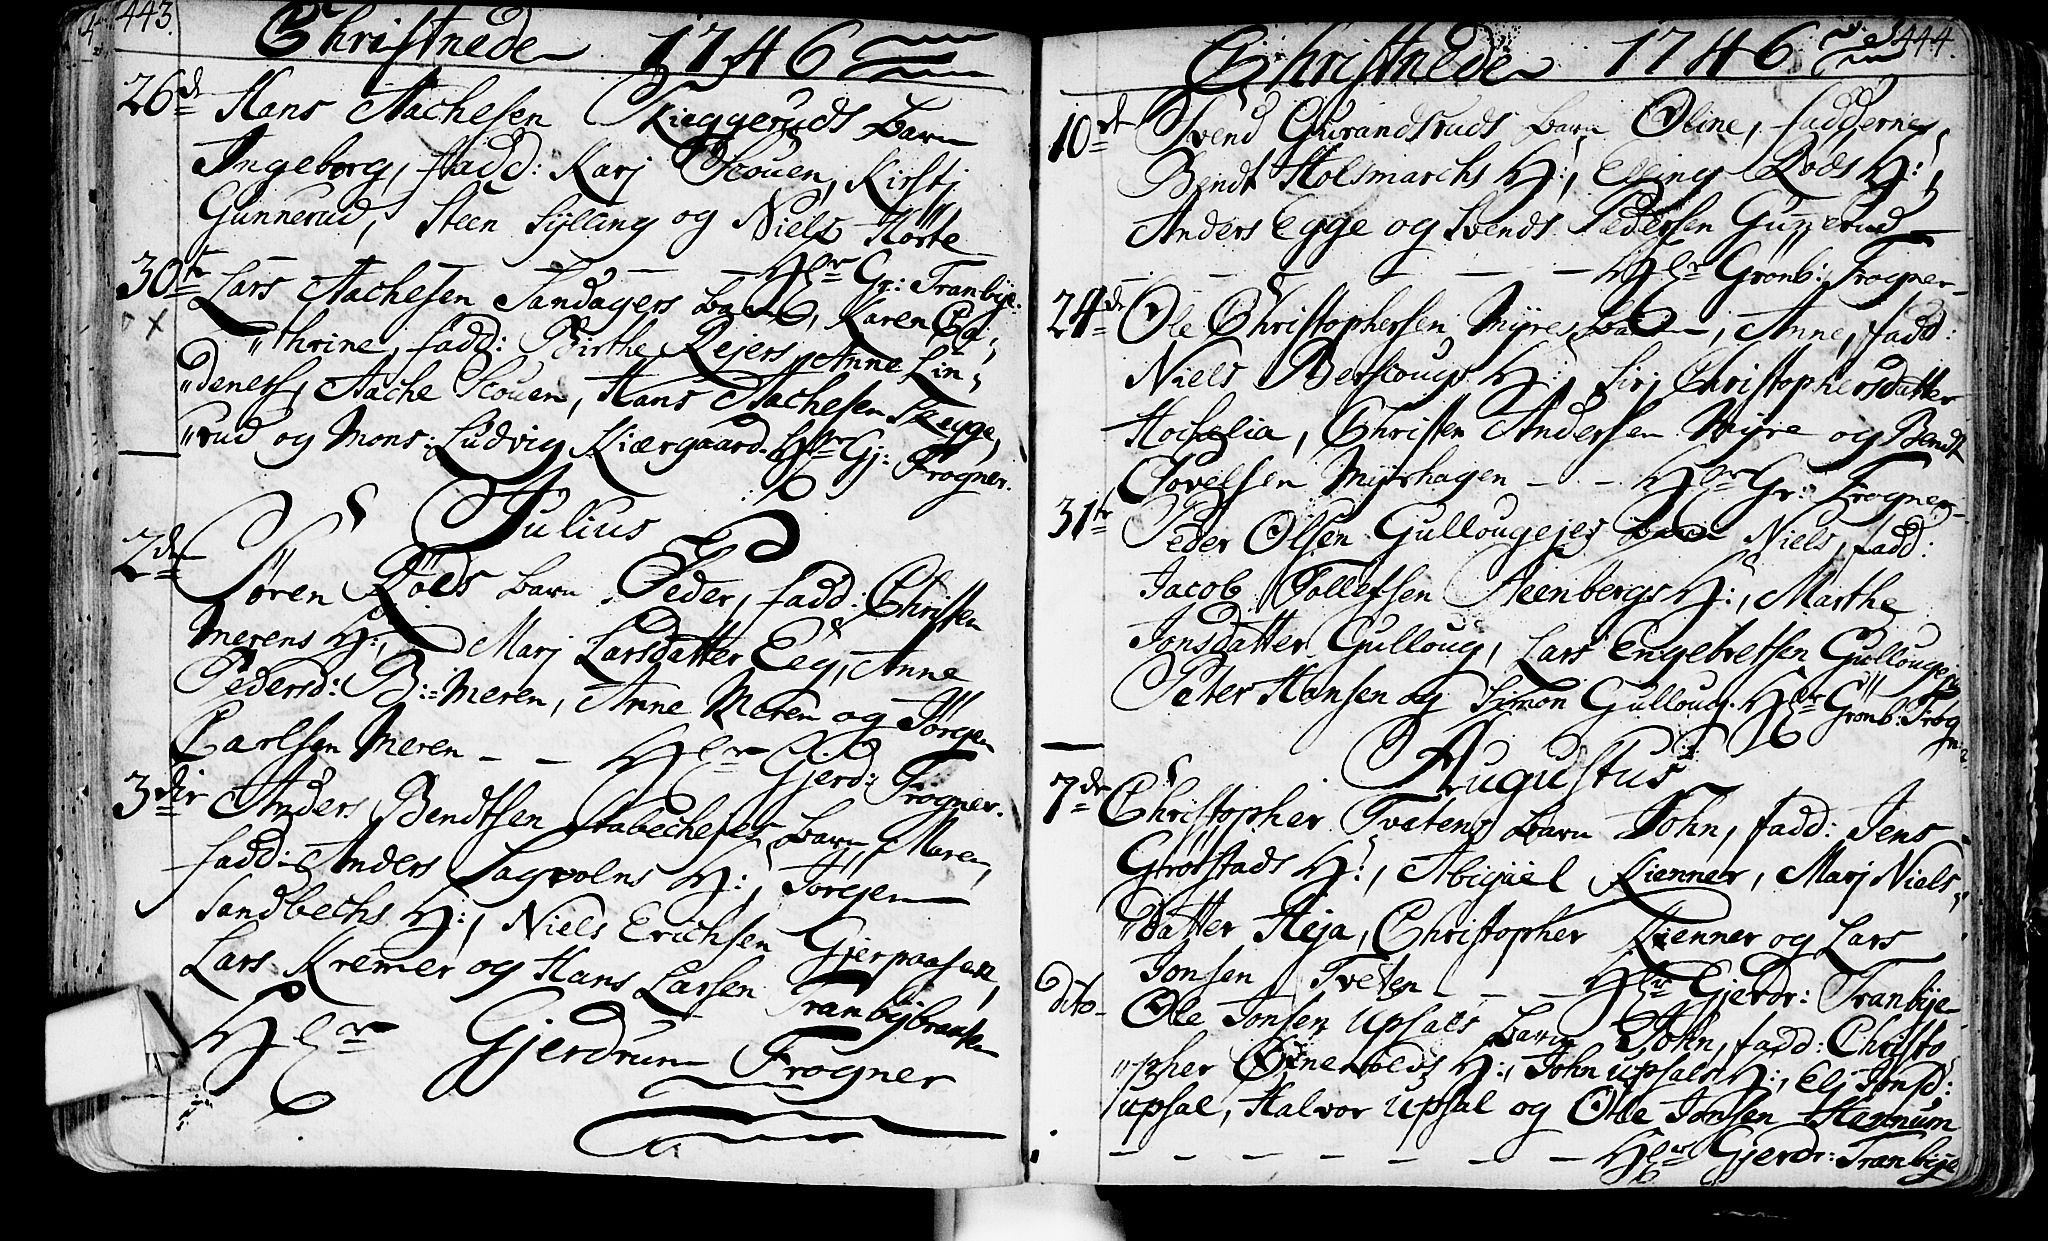 443.
Christnede 1746
26de Hans Aachesen Kieggeruds barn
Ingeborg, fadd: Karj Scouen, Kirstj
Gunnerud, Steen Sylling og Niels Hörte
— — — Hr Gr: Tranbye.
30te Lars Aachesen Sandagers barn, Karen Ca-
"thrine, fadd: Birthe Rejers, Anne Lin-
"denes, Aache Scouen, Hans Aachesen Kegge,
"rud og Mons: Ludvig Kiærgaard. Hr Gj: Frogner.
Julius
2den Sören Röeds barn Peder, fadd: Christen
Merens H:, Marj Larsdatter Eeg, Anne
Pedersd: B:=Meren, Anne Meren og Jörgen
Carlsen Meren — — Hr Gjerd: Frogner.
3die Anders Bendtsen Stabechejes barn, Maren,
fadd: Anders Lagvolns H:, Jörgen
Sandbechs H:, Niels Erichsen Gjerpaasen,
Lars Kremer og Hans Larsen Tranbybraaten
Hr Gjerdrum Frogner
444.
Christnede 1746
10de Svend Gurandsruds barn Oline, fadderne,
Bendt Holsmarchs H:, Elling Röds H:,
Anders Egge og Svends Pedersen Gunnerud
— — — — — Hr Gronb: Frogner
24de Ole Christophersen Myres barn, Anne, fadd:
Niels Berscougs H: Sirj Christophersdatter
Hochelia, Christen Andersen Myre og Bendt
Povelsen Myrhagen — — Hr Gr: Frogner
31te Peder Olsen Gullougejes barn Niels, fadd:
Jacob Tollefsen Steenbergs H:, Marthe
Jonsdatter Gulloug, Lars Engebretsen Gullougeje
Peter Hansen og Simon Gulloug. Hr Gronb: Frog
n:
Augustus
7de Christopher Tvetens barn John, fadd: Jens
Grorstads H:, Abigael Kienner, Marj Niels-
"datter Heja, Christopher Kienner og Lars
Jonsen Tveten — — Hr Gjerdr: Tranbye
dito Ole Jonsen Upsals barn John, fadd: Christo
"pher Ennevolds H:, John Upsals H:, Eli Jonsd:
Upsal, Halvor Upsal og Ole Jonsen Hennum
— — — — — — — Hr Gjerdr: Tranbye